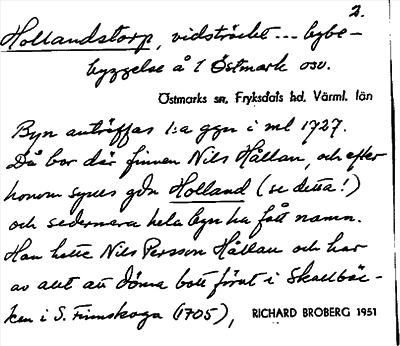 2.
Hollandstorp, vidsträckt --- bybe-
byggelse å 1 Östmark osv.
Östmarks sn, Fryksdals hd, Värml. län
Byn anträffas 1:a ggn i ml 1727.
Då bor där finnen Nils Hållan, och efter
honom synes gdn Holland (se detta!)
och sedermera hela byn ha fått namn.
Han hette Nils Persson Hållan och har
av allt att döma bott förut i Skallbäc-
ken i S. Finnskoga (1705),
RICHARD BROBERG 1951